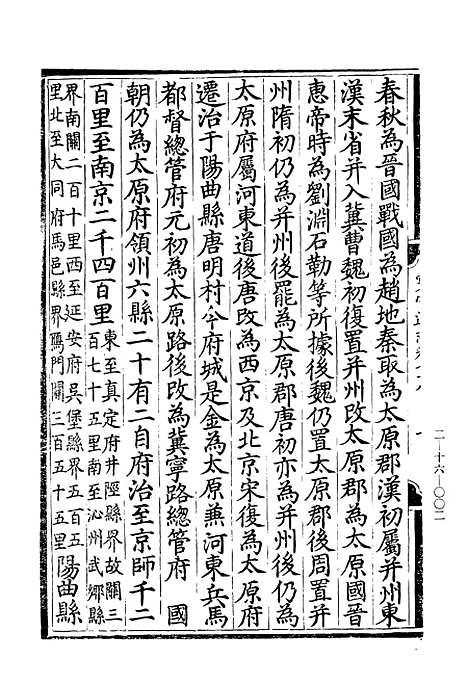 春秋為晉國戰國為趙地秦取為太原郡漢初屬并州東
漢末省并入冀曹魏初復置并州改太原郡為太原國晉
惠帝時為劉淵石勒等所據後魏仍置太原郡後周置并
州隋初仍為并州後罷為太原郡唐初亦為并州後陞為
太原府屬河東道後唐改為西京及北京宋復為太原府
遷治于陽曲縣唐明村今府城是金為太原兼河東兵馬
都督總管府元初為太原路後改為冀寧路總管府 國
朝仍為太原府領州六縣二十有二自府治至京師千二
百里至南京二千四百里東至真定府井陘縣界故關三
百七十五里南至沁州武鄉縣
界南關二百十里西至延安府吳堡縣界五百五十
里北至大同府馬邑縣界鴈門關三百五十五里陽曲縣
二—十六—〇〇二